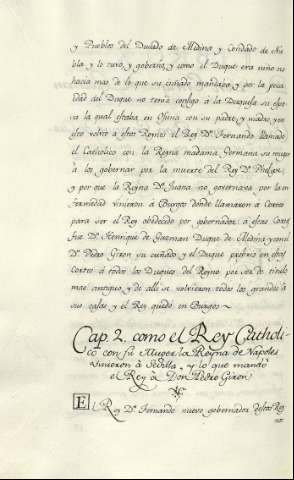 y Pueblos del Ducado de Medina y Condado de Nie
bla y lo tuvo, y goberno, y como el Duque era niño no
hacia mas de lo que su cuñado mandaba, y por la poca
edad del Duque no tenia consigo a la Duquesa su espo
sa la qual estaba en Osuna con su padre, y madre, y en
esto volvio a estos Reynos el Rey Dn. Fernando llamado
el Catholico con la Reyna madama Germana su muger
à los gobernar por la muerte del Rey Dn. Phelipe,
y por que la Reyna Da. Juana no governava por la en
fermedad vinieron à Burgos donde llamaron à Cortes
para ser el Rey obedecido por gobernador, à estas Cortes
fue Dn. Henrique de Guzman Duque de Medina y con el
Dn. Pedro Giron su cuñado y el Duque prefirio en estas
Cortes à todos los Duques del Reyno por ser de titulo
mas antiguo, y de alli se volvieron todos los grandes à
sus casas y el Rey quedó en Burgos~
Cap. 2. como el Rey Catholi-
co con su Muger la Reyna de Napoles
vinieron à Sevilla, y lo que mandó
el Rey à Don Pedro Giron
El Rey Dn. Fernando nuevo gobernador destos Rey